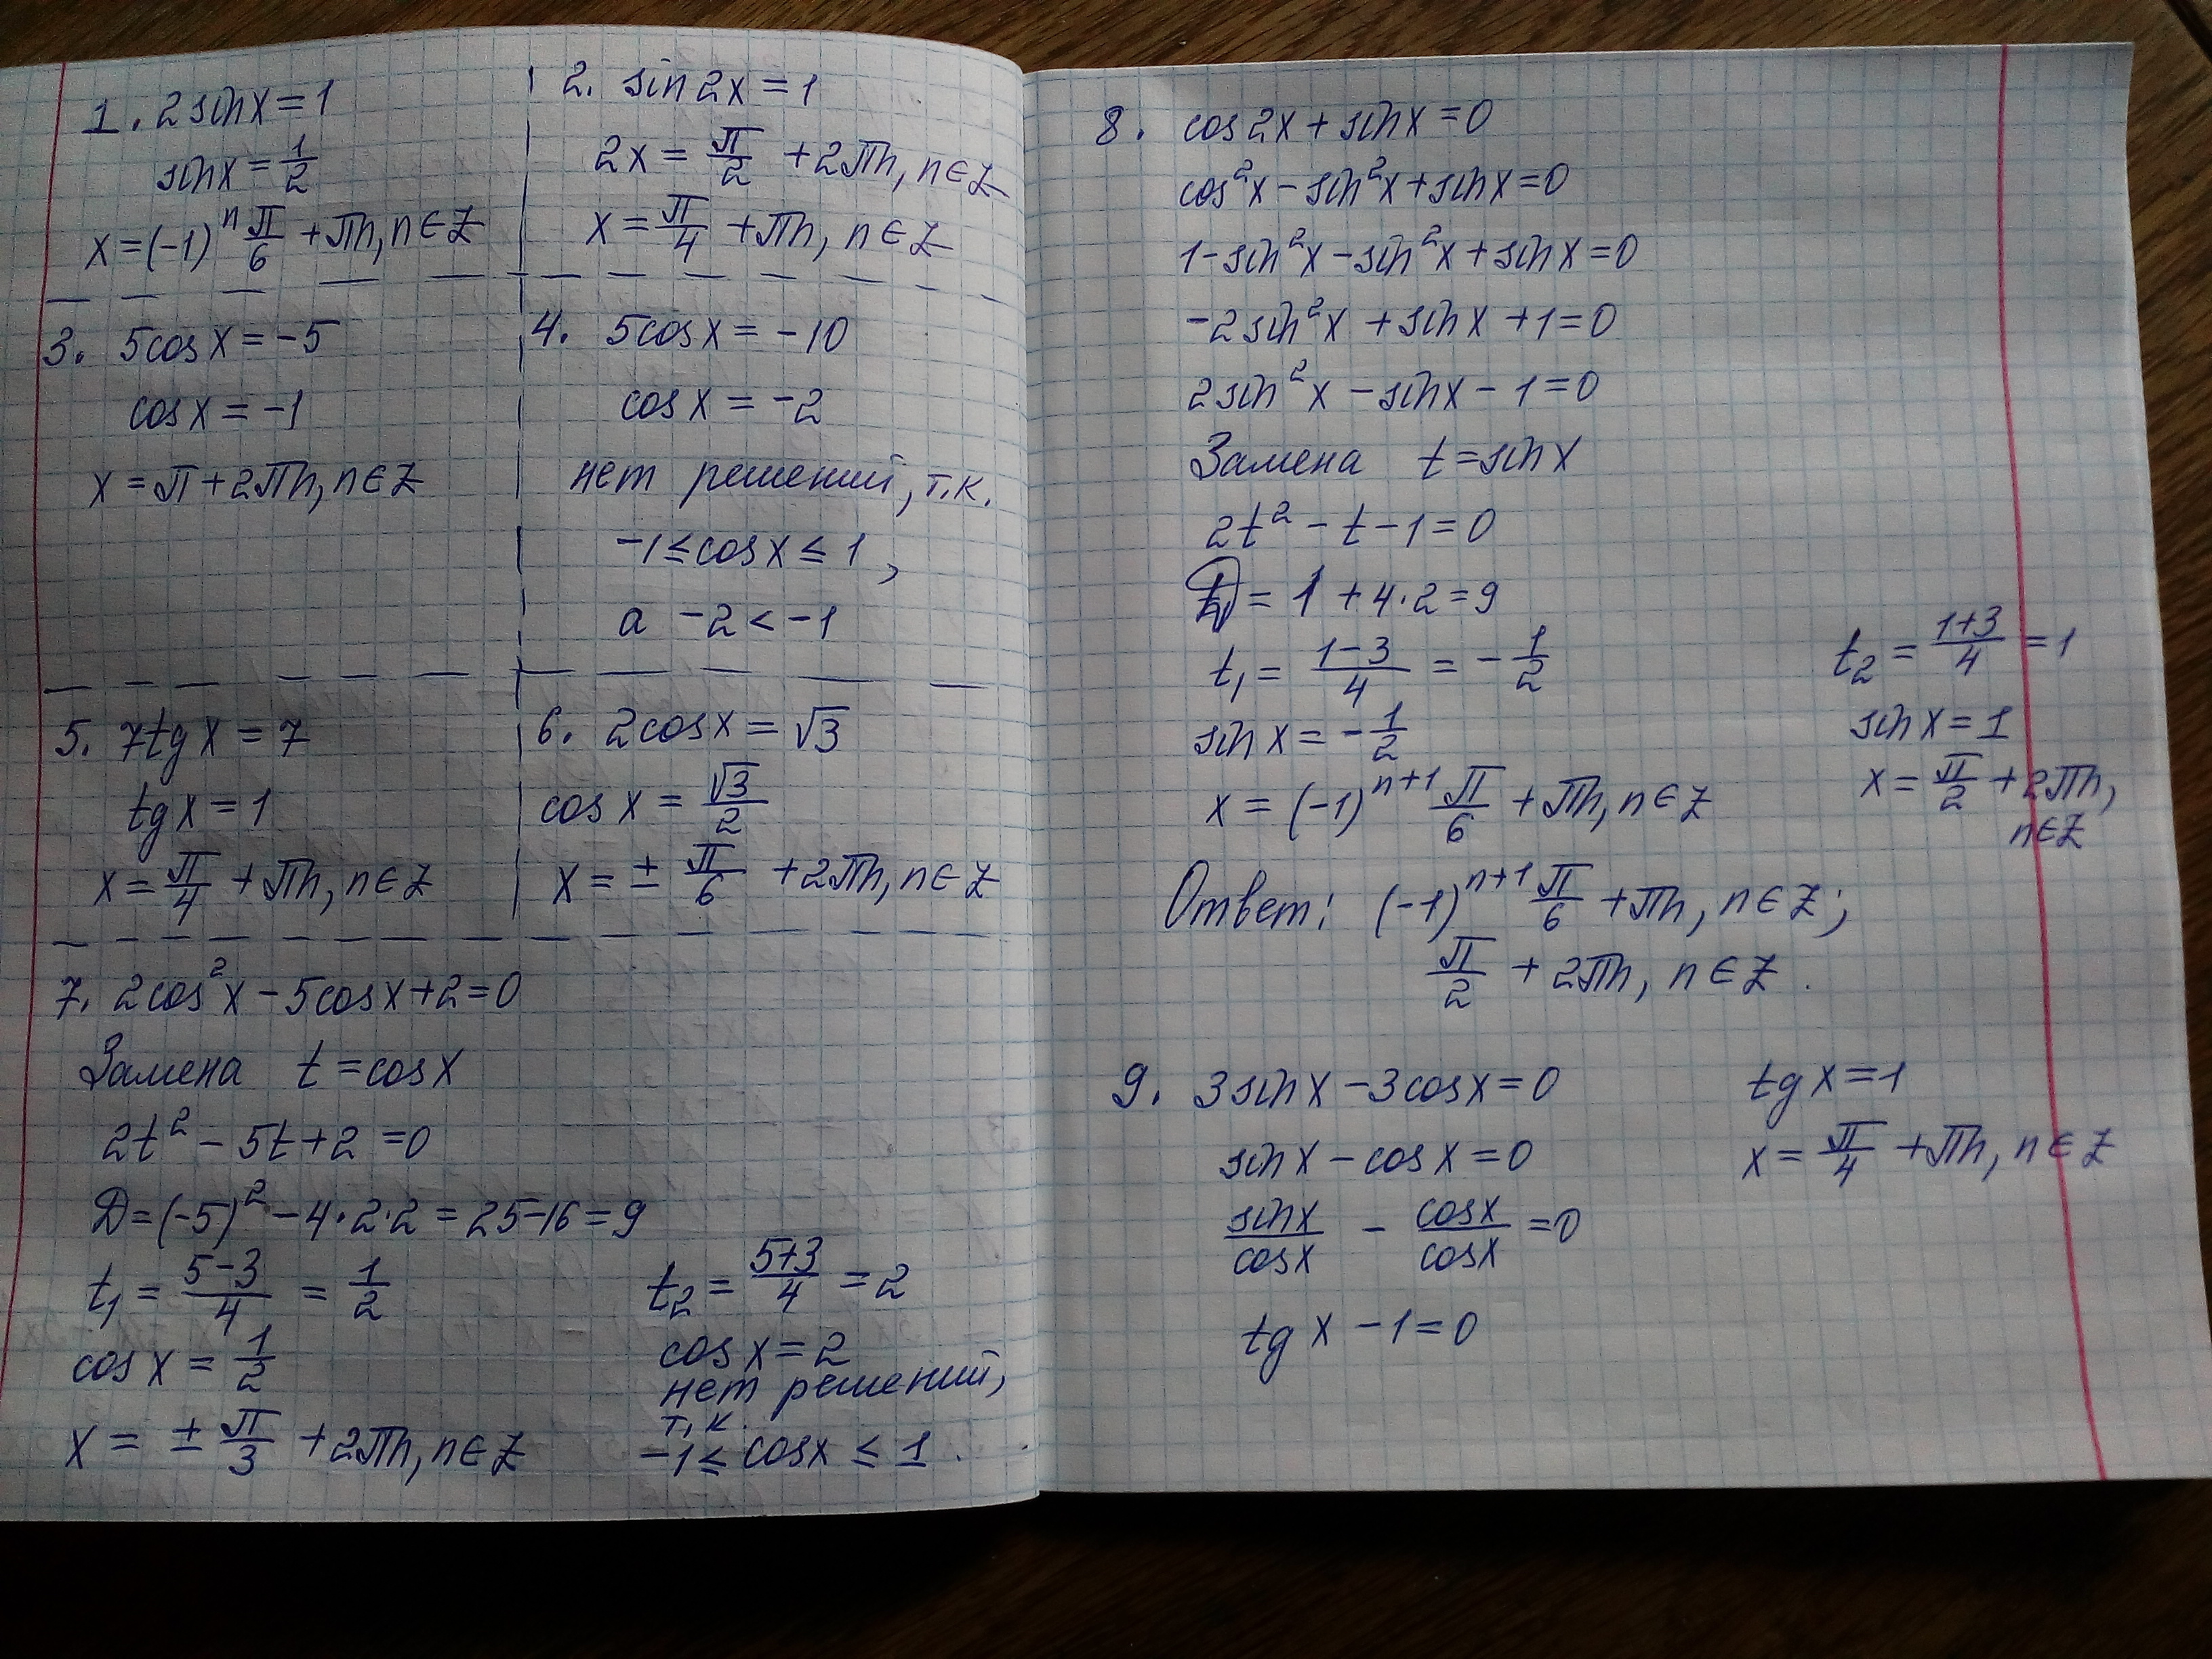 1. 2sinx=1
sinx=1/2
x=(-1)^n π/6 +πn, n∈Z
2. sin2x=1
2x=π/2 +2πn, n∈Z
x=π/4 +πn, n∈Z
3. 5cosx=-5
cosx=-1
x=π+2πn, n∈Z
4. 5cosx=-10
cosx=-2
нет решений, т.к.
-1≤cosx≤1,
а -2<-1
5. 7tgx=7
tgx=1
x=π/4 +πn, n∈Z
6. 2cosx=√3
cosx=√3/2
x=± π/6 +2πn, n∈Z
7. 2cos²x-5cosx+2=0
Замена t=cosx
2t²-5t+2=0
D=(-5)²-4·2·2=25-16=9
t₁=(5-3)/4=1/2
cosx=1/2
x=± π/3 +2πn, n∈Z
t₂=(5+3)/4=2
cosx=2
нет решений,
т.к.
-1≤cosx≤1.
8. cos2x+sinx=0
cos²x-sin²x+sinx=0
1-sin²x-sin²x+sinx=0
-2sin²x+sinx+1=0
2sin²x-sinx-1=0
Замена t=sinx
2t²-t-1=0
D=1+4·2=9
t₁=(1-3)/4=-1/2
sinx=-1/2
x=(-1)^(n+1) π/6 +πn, n∈Z
t₂=(1+3)/4=1
sinx=1
x=π/2 +2πn,
n∈Z
Ответ: (-1)^(n+1) π/6 +πn, n∈Z;
π/2 +2πn, n∈Z.
9. 3sinx-3cosx=0
sinx-cosx=0
sinx/cosx - cosx/cosx=0
tgx-1=0
tgx=1
x=π/4 +πn, n∈Z